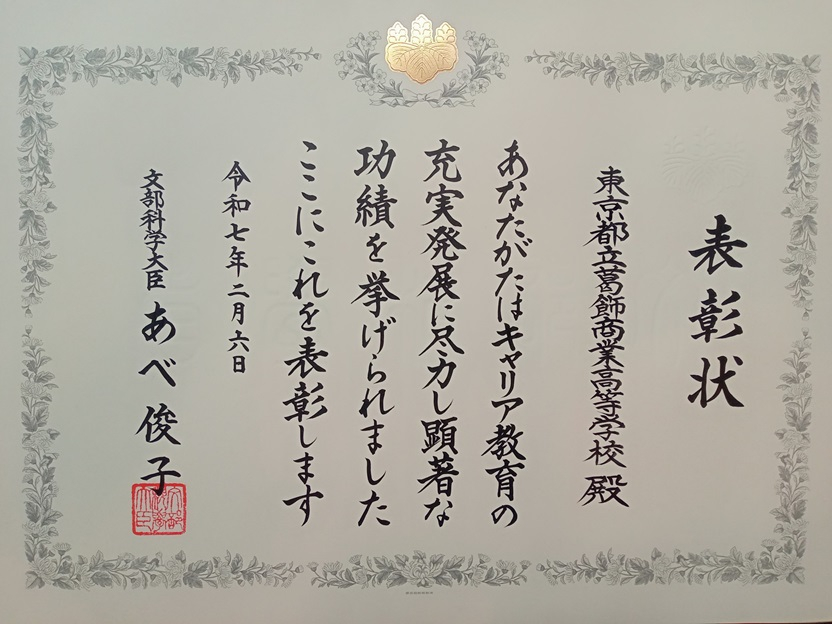 表彰状
東京都立葛飾商業高等学校 殿
あなたがたはキャリア教育の
充実発展に尽力し顕著な
功績を挙げられました
ここにこれを表彰します
令和七年二月六日
文部科学大臣 あべ 俊子